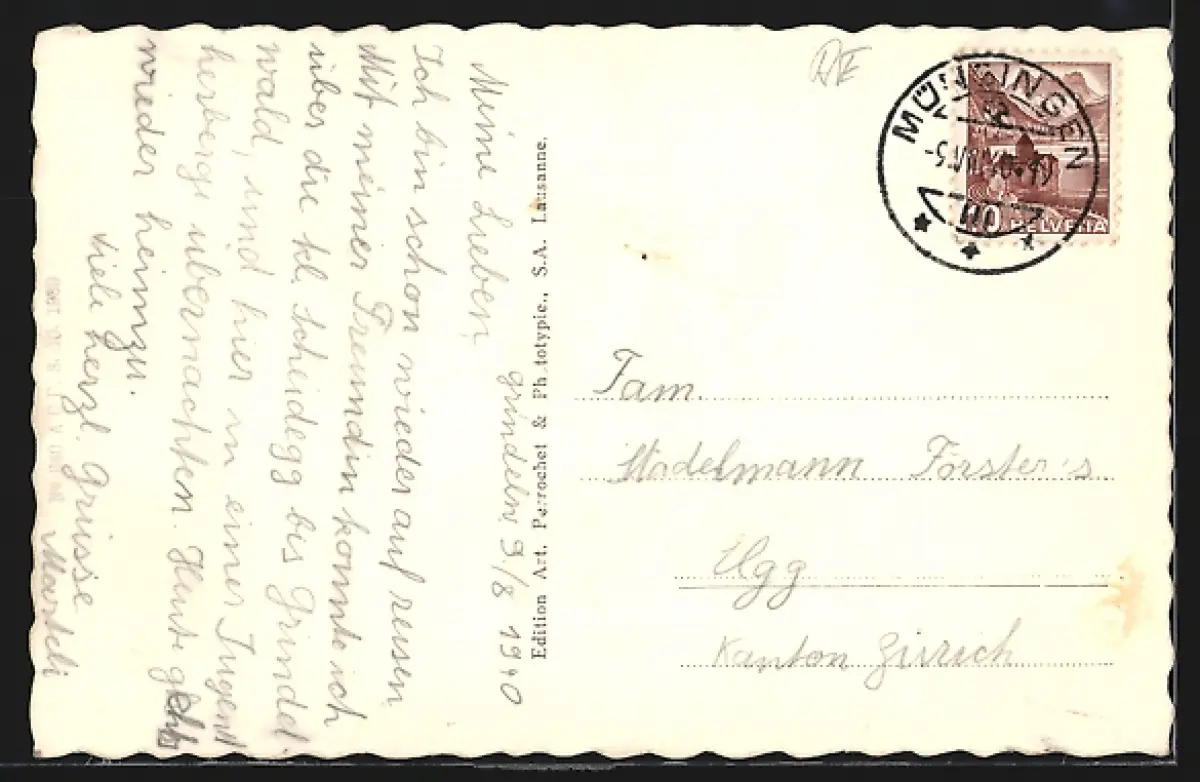 Grindelw. 9/8 1940
Meine Lieben,
Ich bin schon wieder auf reisen
Mit meiner Freundin konnte ich
über die kl. Scheidegg bis Grindel-
wald, und hier in einer Jugend
herberge übernachten. Heute gehts
wieder heimzu.
Viele herzl. Grüsse
Edition Art. Perrochet & Phototypie., S.A. Lausanne.
MÜNSINGEN
10 HELVETIA
Fam.
Stadelmann Förster's
Egg
Kanton Zürich